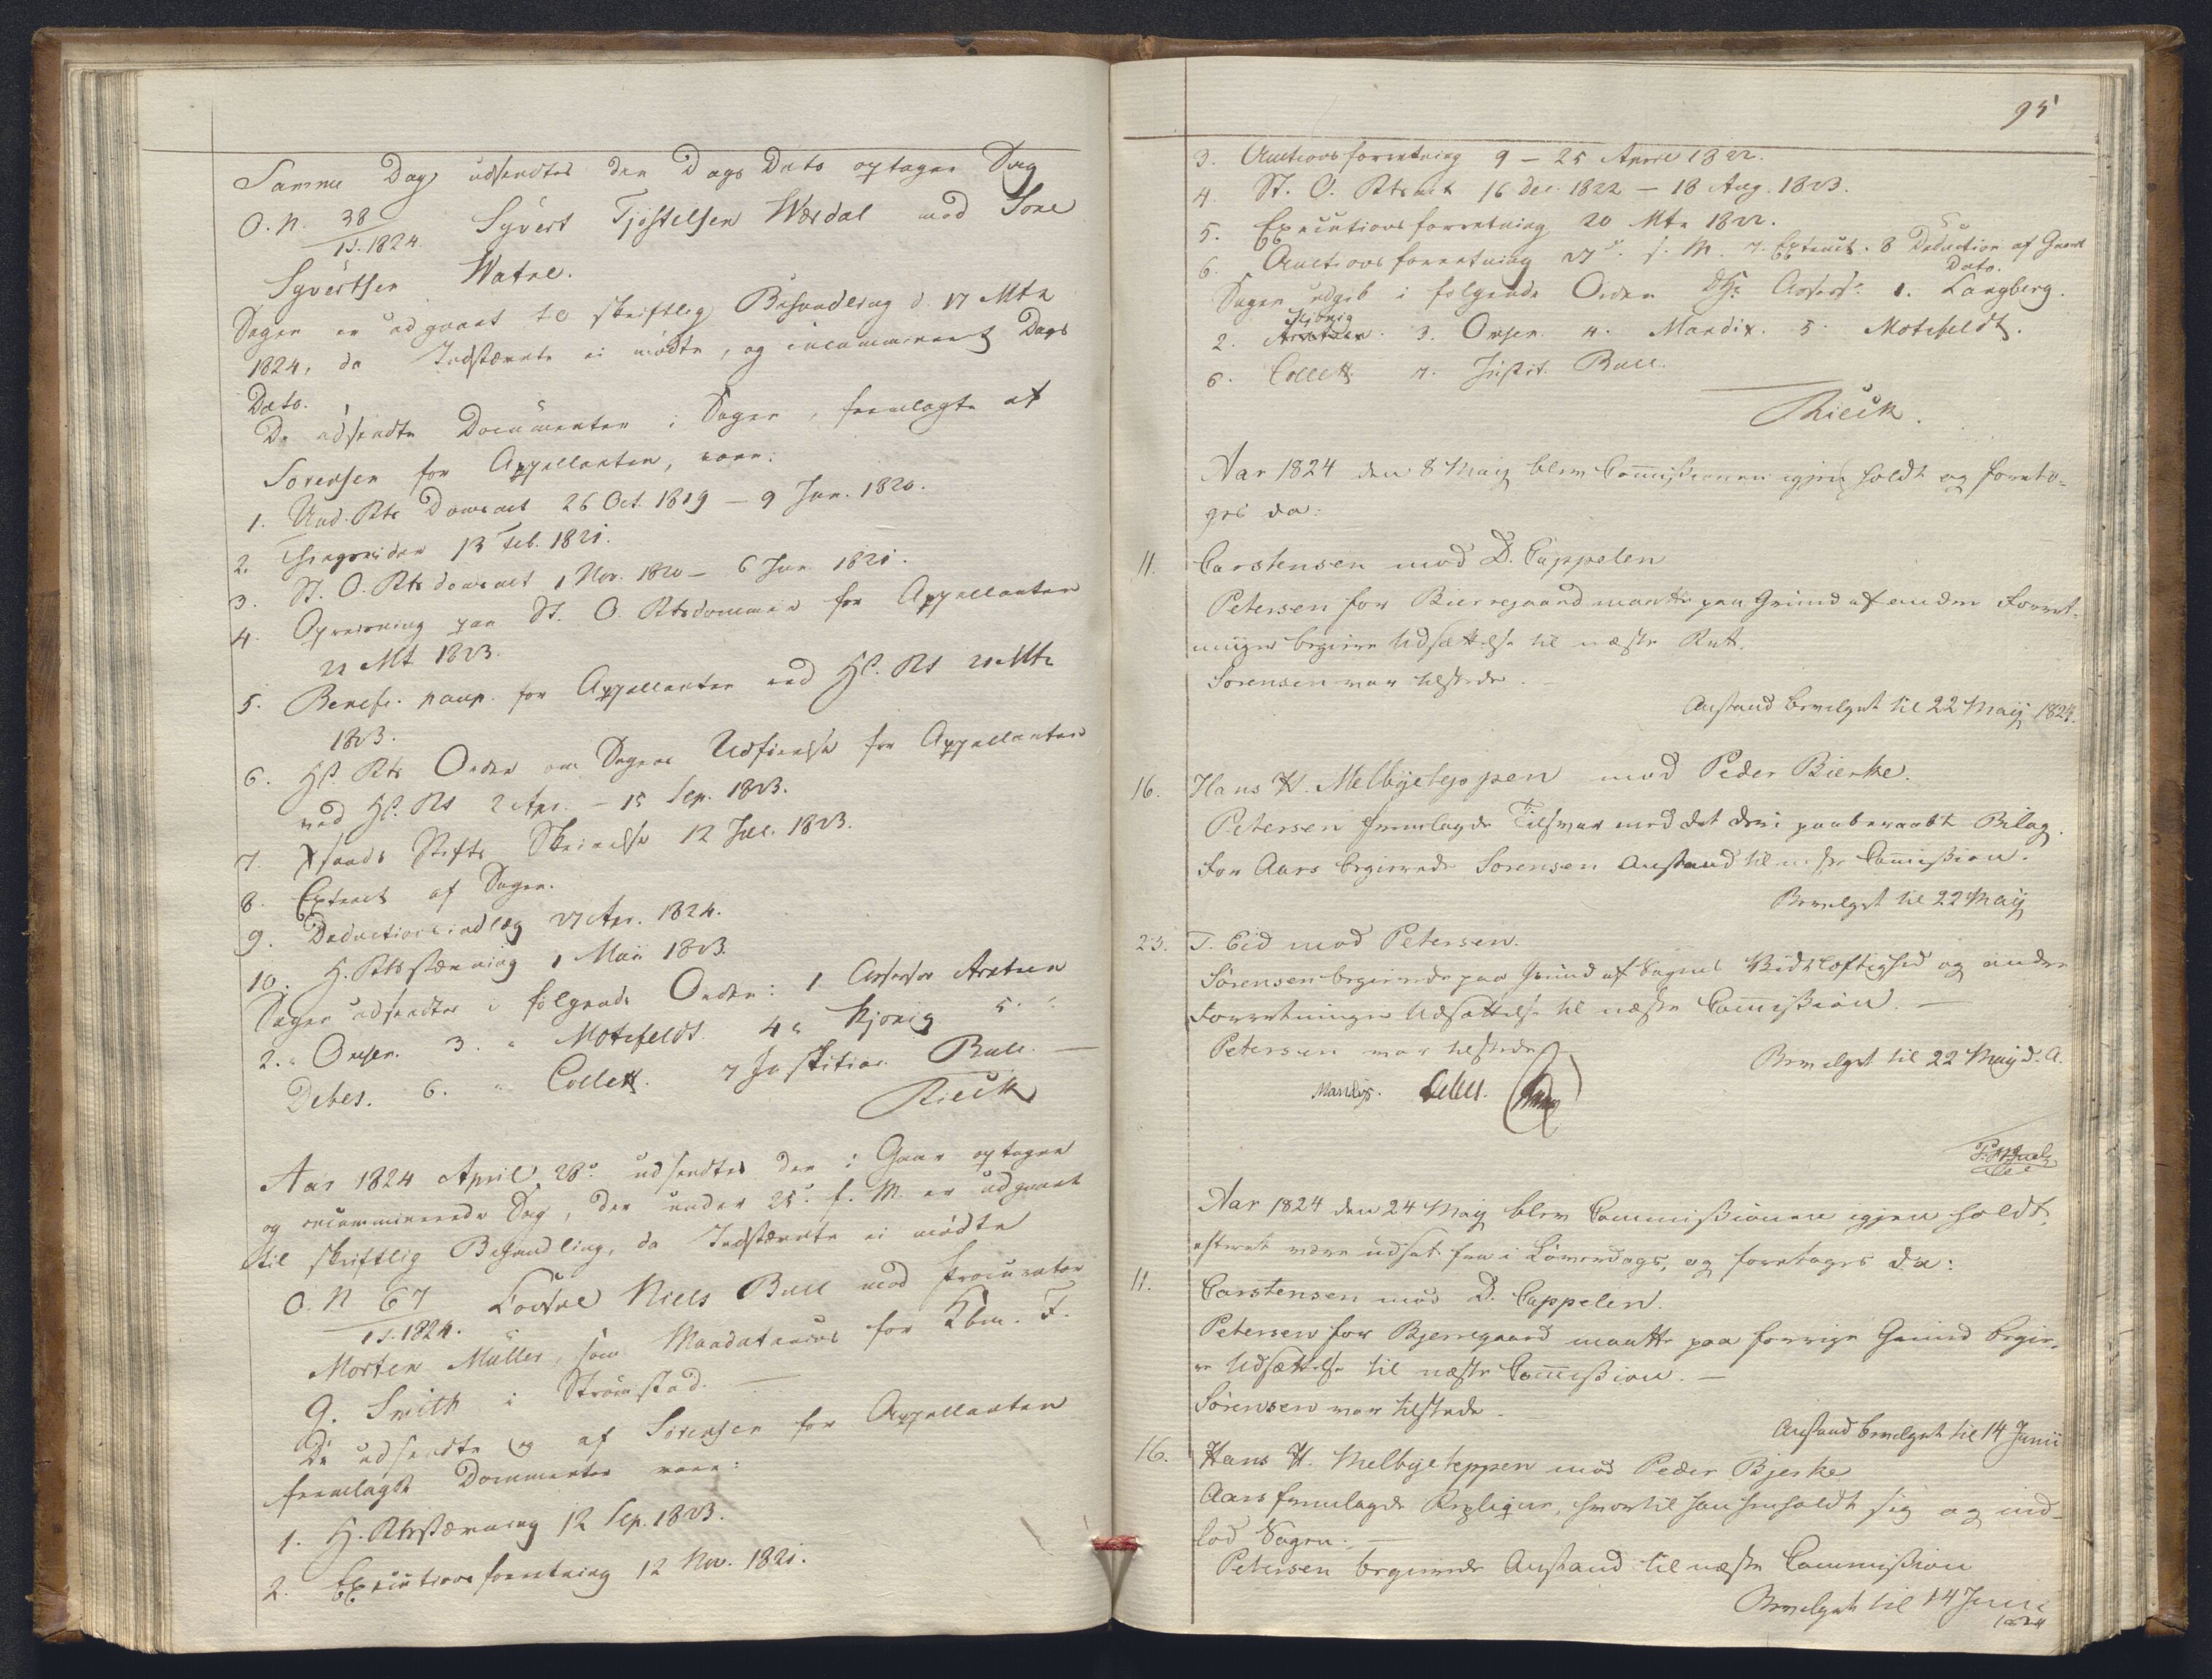 Samme Dag udsendtes den Dags Dato optagne Sag
O. N. 38/1 S. 1824. Syvert Tjøstelsen Wærdal mod Tore
Syvertsen Watne.
Sagen er udgaaet til skriftlig Behandling d. 17 Mts
1824, da Indstævnte ei mødte, og incammineret Dags
Dato.
De udsendte Documenter i Sagen, fremlagte af
Sørensen for Appellanten, vare:
1. Und. Rts Domsact 26 Oct. 1819 – 9 Jun. 1820.
2. 13 Feb. 1821.
3. St. O. Rts domsact 1 Nov. 1820 – 6 Jun 1821.
4. paa St. O. Rtsdommen for Appellanten
22 Mt 1823.
5. Benefi. paup. for Appellanten ved Hst. Rt 21 Mts
1823.
6. Hst Rts Orden om Sagens Udførelse for Appellanten
ved Hst. Rt 2 Apr. – 15 Sep. 1823.
7. Xsands Stifts Skrivelse 12 Jul. 1823.
8. Extract af Sagen.
9. Deductionsindlæg 27 Apr. 1824.
10. H. Rtsstævning 1 Maii 1823.
Sagen udsendtes i følgende Orden: 1 Assessor Arntzen
2. " Omsen. 3. " Motzfeldt. 4 " Hjorig 5. "
Debes. 6. " Collett. 7 Justitiar. Bull. —
Rieck
Aar 1824 April 28de udsendtes den i Gaar optagne
og incamminerede Sag, der under 25de f. M. er udgaaet
til skriftlig Behandling, da Indstævnte ei mødte
O. N 67/1 S. 1824. Niels Bull mod Procurator
Morten Müller, som Mandatarius for Kbm. F.
G. Smith i Strømstad. —
De udsendte og af Sørensen for Appellanten
fremlagde Documenter vare:
1. H. Rtsstævning 12 Sep. 1823.
2. Executionsforretning 12 Nov. 1821.
95
3. Auctionsforretning 9 – 25 April 1822.
4. St. O. Rts act 16 Dec. 1822 – 18 Aug. 1823.
5. Executionsforretning 20 Mts 1822.
6. Auctionsforretning 27de s. M. 7. Extract. 8 Deduction af Gaars
Dato.
Sagen udgik i følgende Orden Hr. Assess. 1. Langberg.
2. 3. Omsen. 4. Mandix. 5. Motzfeldt.
6. Collett. 7. Justit. Bull.
Rieck.
Aar 1824 den 8 May blev Commissionen igjen holdt og foreto-
ges da:
11. Carstensen mod D. Cappelen
Petersen for Bierregaard maatte paa Grund af andre Forret-
ninger begiere Udsættelse til næste Rett.
Sørensen var tilstede.
Anstand bevilget til 22 Maij 1824.
16. Hans H. Melbyetejpen mod Peder Bierke.
Petersen fremlagde Tilsvar med det deri paaberaabt Bilag.
For Aars begierede Sørensen Anstand til næste Commission.
Bevilget til 22 Maij
23. T. Eid mod Petersen.
Sørensen begierede paa Grund af Sagens Vidtløftighed og andre
Forretninger Udsættelse til næste Commission. —
Petersen var tilstede
Bevilget til 22 May d. A.
Mandix. Debes.
Aar 1824 den 24 May blev Commissionen igjen holdt,
efterat være udsat fra i Løverdags, og foretoges da:
11. Carstensen mod D. Cappelen.
Petersen for Bjerregaard maatte paa forrige Grund begie-
re Udsættelse til næste Commission. —
Sørensen var tilstede.
Anstand bevilget til 14 Junii
16. Hans H. Melbyeteppen mod Peder Bjerke
Aars fremlagde Repliqve, hvortil han henholdt sig og ind-
lod Sagen. —
Petersen begierede Anstand til næste Commission
Bevilget til 14 Junii
1824